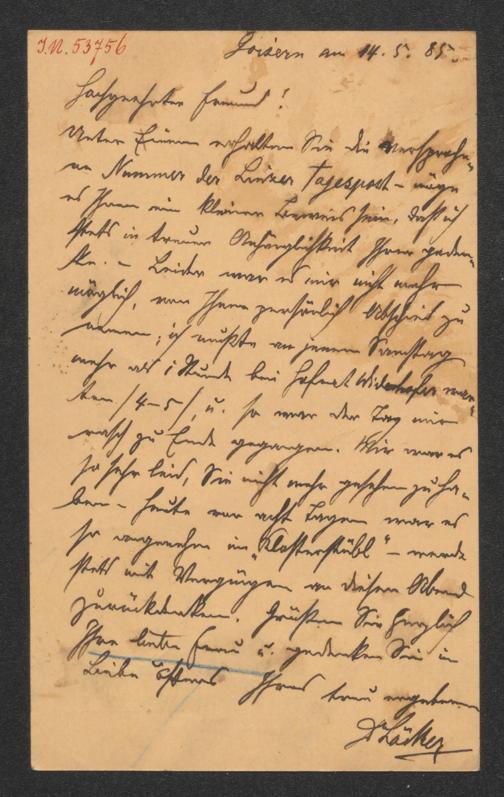 I.N. 53756
Goisern am 14.5. 85.
Hochgeehrter Freund!
Unter Einem erhalten Sie die versproche-
ne Nummer der Linzer Tagespost – möge
es Ihnen ein kleiner Beweis sein, daß ich
stets in treuer Anhänglichkeit Ihrer geden-
ke. – Leider war es mir nicht mehr
möglich, von Ihnen persönlich Abschied zu
nemen; ich mußte an jenem Samstag
mehr als 1 Stunde bei Hofrat Widerhofer war-
ten /4–5/, u. so war der Tag mir
rasch zu Ende gegangen. Mir war es
so sehr leid, Sie nicht mehr gesehen zu ha-
ben – heute vor acht Tagen war es
so angenehm im „Klosterstübl" – werde
stets mit Vergnügen an diesen Abend
zurückdenken. Grüßen Sie herzlich
Ihre liebe Frau u. gedenken Sie in
Liebe öfters Ihres treu ergebenen
Dr